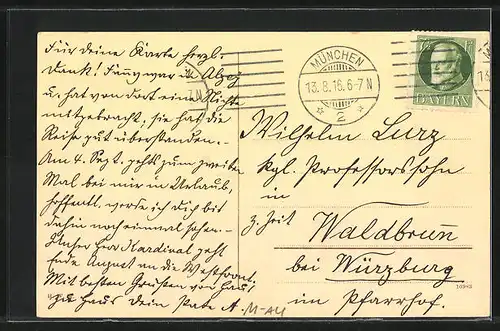 Für deine Karte herzl.
Dank! Fanny war in Alzey
u. hat von dort eine Nichte
mitgebracht, sie hat die
Reise gut überstanden. –
Am 4. Sept. gehts zum zweiten
Mal bei mir in Urlaub,
hoffentl. werde ich dich bis
dahin noch einmal sehen. –
Unser Herr Kardinal geht
Ende August an die Westfront.
Mit besten Grüßen von Haus
zu Haus Dein Pate A.
M-AU
MÜNCHEN
13.8.16.6-7N
2
7N
BAYERN
Wilhelm Lurz
kgl. Professorssohn
in
z. Zeit Waldbrunn
bei Würzburg
im Pfarrhof.